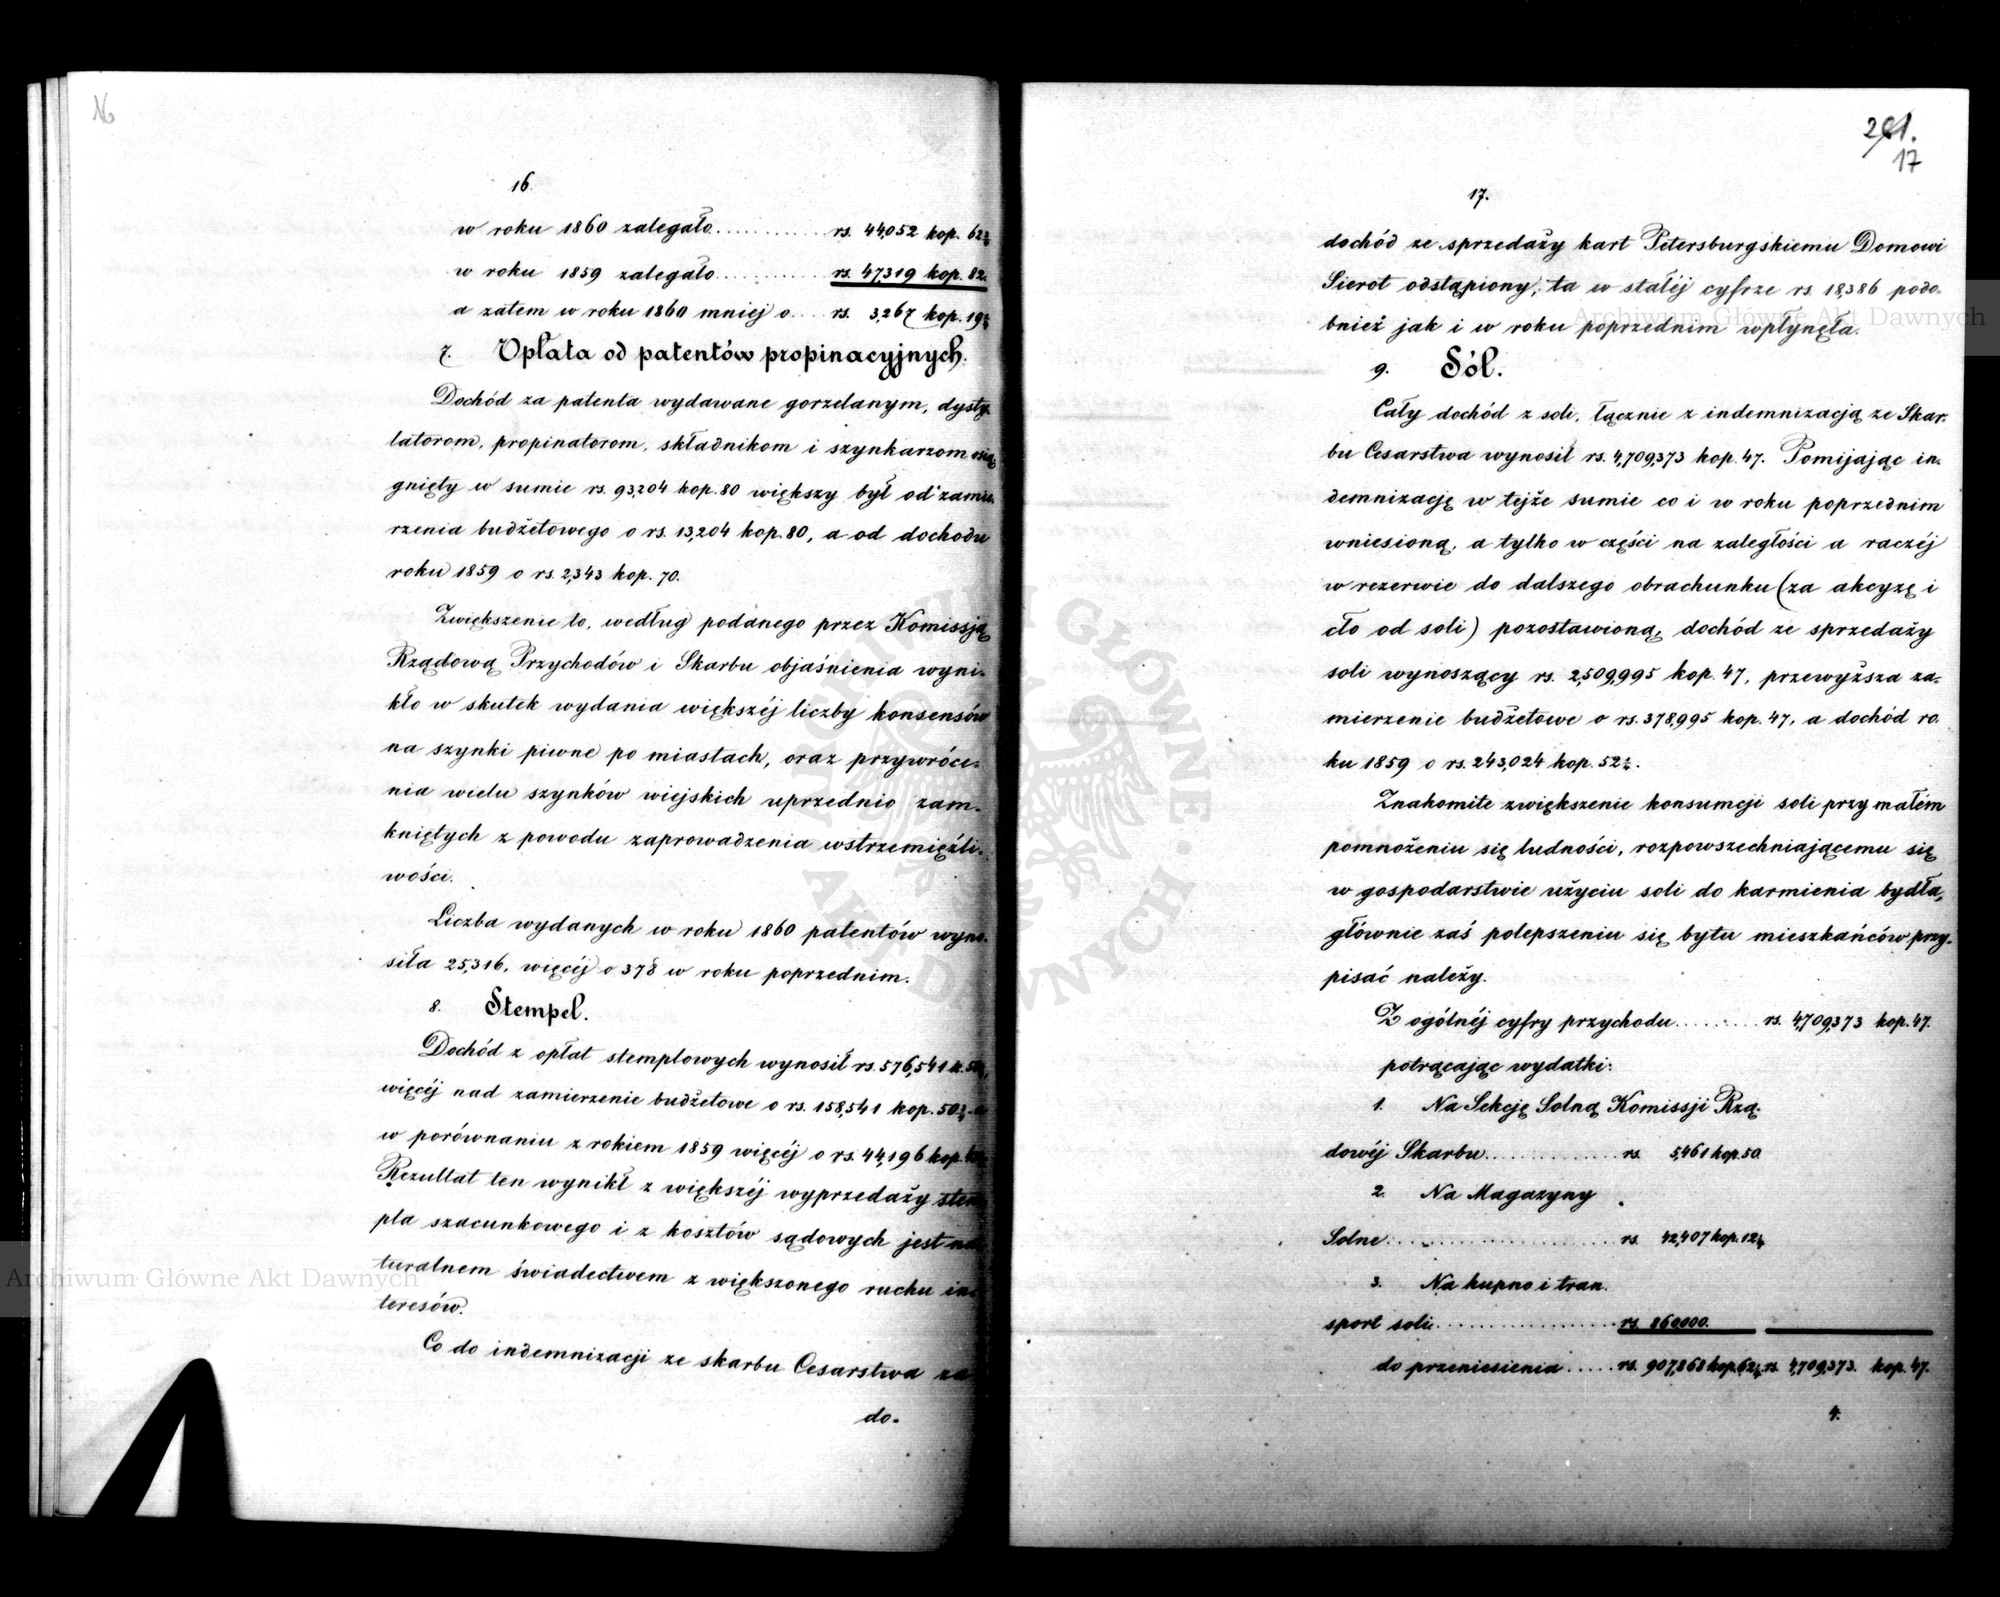 16.
w roku 1860 zalegało............rs. 44,052 kop. 62½
w roku 1859 zalegało............rs. 47,319 kop. 82.
a zatem w roku 1860 mniej o....rs. 3,267 kop. 19½
7. Opłata od patentów propinacyjnych.
Dochód za patenta wydawane gorzelanym, dysty-
latorom, propinatorom, składnikom i szynkarzom osią-
gnięty w sumie rs. 93,204 kop. 80 większy był od zamie-
rzenia budżetowego o rs. 13,204 kop. 80, a od dochodu
roku 1859 o rs. 2,343 kop. 70.
Zwiększenie to, według podanego przez Komissją
Rządową Przychodów i Skarbu objaśnienia wyni-
kło w skutek wydania większéj liczby konsensów
na szynki piwne po miastach, oraz przywróce-
nia wielu szynków wiejskich uprzednio zam-
kniętych z powodu zaprowadzenia wstrzemięźli-
wości.
Liczba wydanych w roku 1860 patentów wyno-
siła 25,316, więcéj o 378 w roku poprzednim.
8. Stempel.
Dochód z opłat stemplowych wynosił rs. 576,541 k.
więcéj nad zamierzenie budżetowe o rs. 158,541 kop. 50½
w porównaniu z rokiem 1859 więcéj o rs. 44,196 kop.
Rezultat ten wynikł z większéj wyprzedaży stem
pla szacunkowego i z kosztów sądowych jest na
turalnem świadectwem z większonego ruchu in
teresów.
Co do indemnizacji ze skarbu Cesarstwa za
do.
201.
17
17.
dochód ze sprzedaży kart Petersburgskiemu Domowi
Sierot odstąpiony, ta w stałéj cyfrze rs. 18,386 podo-
bnież jak i w roku poprzednim wpłynęła.
9. Sól.
Cały dochód z soli, łącznie z indemnizacją ze Skar-
bu Cesarstwa wynosił rs. 4,709,373 kop. 47. Pomijając in-
demnizację w tejże sumie co i w roku poprzednim
wniesioną, a tylko w części na zaległości a raczéj
w rezerwie do dalszego obrachunku (za akcyzę i
cło od soli) pozostawioną, dochód ze sprzedaży
soli wynoszący rs. 2,509,995 kop. 47, przewyższa za-
mierzenie budżetowe o rs. 378,995 kop. 47, a dochód ro-
ku 1859 o rs. 243,024 kop. 52½.
Znakomite zwiększenie konsumcji soli przy małém
pomnożeniu się ludności, rozpowszechniającemu się
w gospodarstwie użyciu soli do karmienia bydła,
głównie zaś polepszeniu się bytu mieszkańców przy-
pisać należy.
Z ogólnéj cyfry przychodu.........rs. 4,709,373 kop. 47.
potrącając wydatki:
1. Na Sekcję Solną Komissji Rzą-
dowéj Skarbu..............rs. 5,461 kop. 50.
2. Na Magazyny
Solne.........................rs. 42,407 kop. 12½
3. Na kupno i tran-
sport soli....................rs. 860,000.
do przeniesienia.....rs. 907,868 kop. 62½ rs. 4,709,373. kop. 47.
4.
Archiwum Główne Akt Dawnych
Archiwum Główne Akt Dawnych
ARCHIWUM GŁÓWNE AKT DAWNYCH